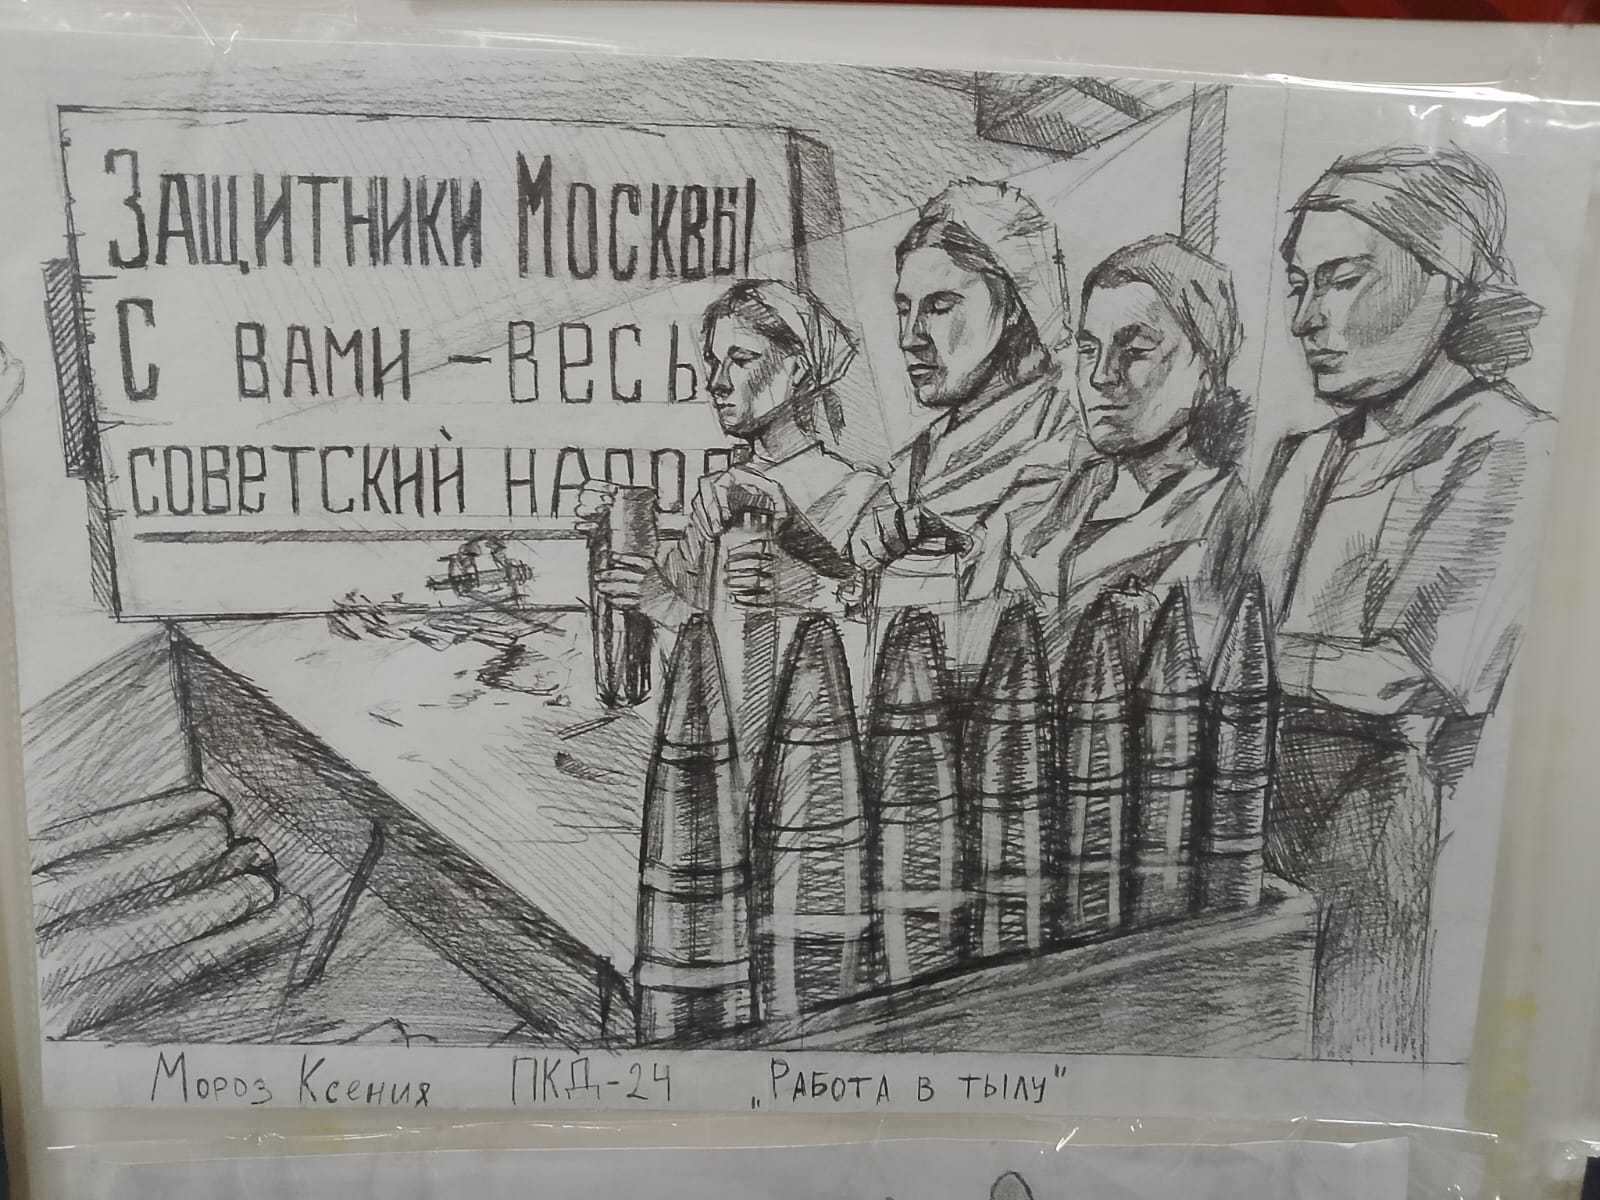 Защитники Москвы
С вами – весь
советский народ
Мороз Ксения ПКД-24 „Работа в тылу"